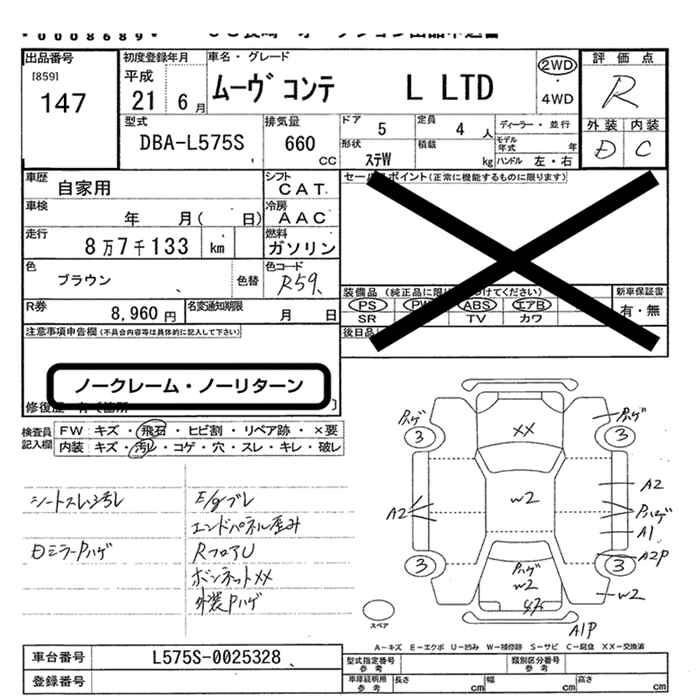 *0008689*
出品番号
[859]
147
初度登録年月
平成
21 6月
車名・グレード
ムーヴ コンテ L LTD
2WD
4WD
評価点
R
型式
DBA-L575S
排気量
660 CC
ドア 5
定員 4 人
ディーラー・並行
モデル年式 年
形状 ステW
積載 kg
ハンドル 左・右
外装 内装
D C
車歴
自家用
シフト
CAT
車検
年 月( 日)
冷房
AAC
走行
8万7千133 km
燃料
ガソリン
色
ブラウン
色替
色コード
R59
R券
8,960円
名変通知期限
月 日
セールスポイント(正常に機能するものに限ります)
装備品(純正品に限り○をつけてください)
PS PW ABS エアB
SR TV カワ
新車保証書
有・無
後日品
注意事項申告欄(不具合内容等は具体的に記入して下さい)
ノークレーム・ノーリターン
修復歴 有(箇所 )
検査員記入欄
FW キズ・飛石・ヒビ割・リペア跡・×要
内装 キズ・汚レ・コゲ・穴・スレ・キレ・破レ
シートスレ、汚レ
E/gブレ
エンドパネル歪み
日ミラーPハゲ
RフロアU
ボンネットXX
外装Pハゲ
Pハゲ
3
XX
Pハゲ
3
A2
W2
A2
Pハゲ
A1
3
Pハゲ
W2
3
A2P
W2
スペア
A1P
A-キズ E-エクボ U-凹み W-補修跡 S-サビ C-腐食 XX-交換済
車台番号
L575S-0025328
登録番号
型式指定番号
参考
類別区分番号
参考
車庫証明用
参考
長さ cm
幅 cm
高さ cm